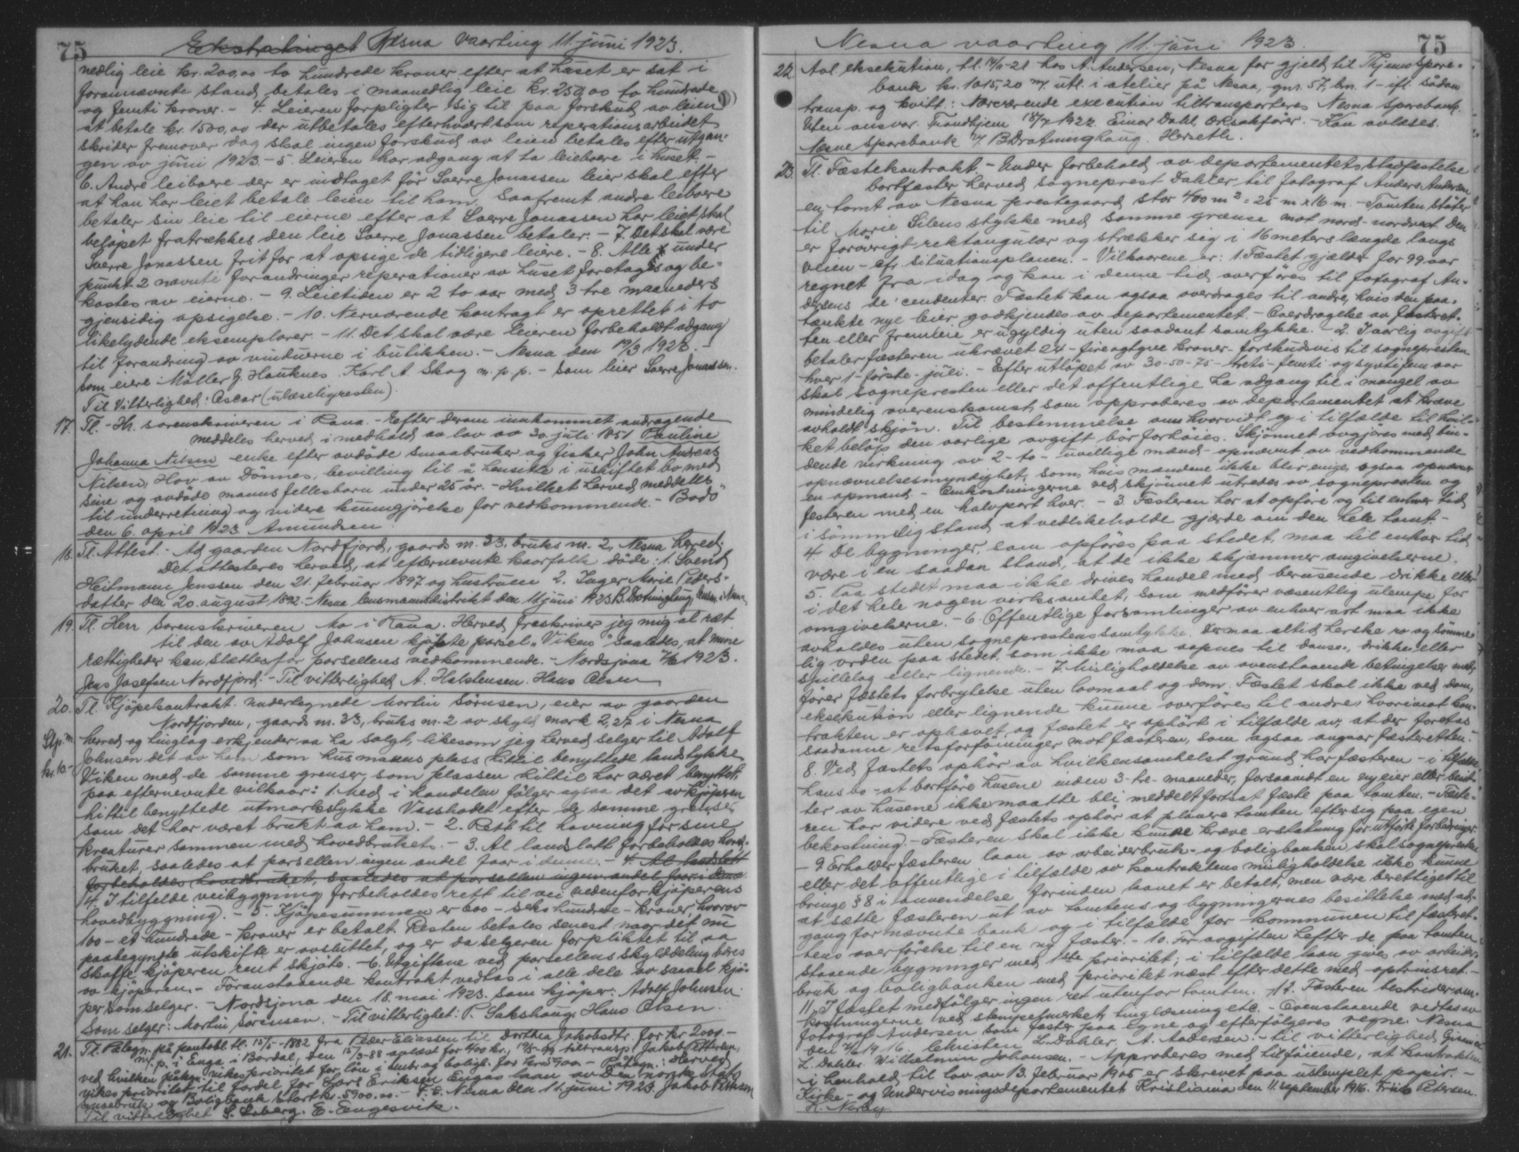 75 Ekstratinget Nesna vaarting 11. juni 1923.
nedlig leie kr. 200,00 to hundrede kroner efter at huset er sat i
forannævnte stand, betales i maanedlig leie kr. 250,00 to hundrede
og femti kroner. - 4. Leieren forpligter sig til paa forskud av leien
at betale kr. 1500,00 der utbetales efterhvert som reperationsarbeidet
skrider fremover dog skal ingen forskud av leien betales efter utgan-
gen av juni 1923 - 5. Leieren har adgang at ta leieboere i huset. -
6. Andre leiboere der er indtaget før Sverre Jonassen leier skal efter
at han har leiet betale leien til ham. Saafremt andre leiboere
betaler sin leie til eierne efter at Sverre Jonassen har leiet skal
beløpet fratrækkes den leie Sverre Jonassen betaler. - 7. Det skal være
Sverre Jonassen frit for at opsige de tidligere leiere. - 8. Alle under
punkt 2 nævnte forandringer reperationer av huset foretages og be-
kostes av eierne. - 9. Leietiden er 2 to aar med 3 tre maaneders
gjensidig opsigelse. - 10. Nærværende kontrakt er oprettet i to
likelydende eksemplarer. - 11. Det skal være leieren forbeholdt adgang
til forandring av vinduerne i butikken. - Nesna den 19/3 1923. -
Som eiere: Møller J. Hauknes. Karl A Skog m. p. p. - Som leier Sverre Jonassen.
Til Vitterlighed: Oscar (ulæselig resten)
17. Tl. - Hr. sorenskriveren i Rana. - Efter derom innkommet andragende
meddeles herved i medhold av lov av 30 juli 1851 Pauline
Johanna Nilsen enke efter avdøde smaabruker og fisker John Andreas
Nilsen, Hov av Dönnes, bevilling til å hensitte i uskiftet bo med
sine og avdøde manns fellesbarn under 25 år. - Hvilket herved meddeles
til underretning og videre kunngjørelse for vedkommende. - Bodö
den 6. april 1923 Amundsen
18. Tl. Attest. Ad gaarden Nordfjord, gaards nr. 33, bruks nr. 2, Nesna herred
Det attesteres herved, at efternevnte hvorfolk døde: 1. Svend
Heitmann Jenssen den 21. februar 1897 og hustruen 2. Inger Marie Peders-
datter den 20. august 1892. - Nesna lensmannsdistrikt den 11 juni 1923 B. Dratninghaug
19. Tl. Herr Sorenskriveren Mo i Rana. Herved fraskriver jeg mig al ret
til den av Adolf Johnsen kjøpte parsel "Viken" saaledes, at mine
rættigheder kan slættes for parsellens vedkommende. - Nordsjona 1923.
Jens Josefsen Nordfjord. - Til vitterlighed A. Halstensen. Hans Olsen
20. Tl. Kjøpekontrakt. Undertegnede Martin Sørensen, eier av gaarden
Nordfjorden, gaards nr. 33, bruks nr. 2 av skyld mark 2,27 i Nesna
herred og tinglag erkjender aa ha solgt, likesom jeg herved selger til Adolf
Johnsen det av ham som husmanns plass hittil benyttede landstykke
Viken med de samme grenser, som plassen hittil har været benyttet
paa efternevnte vilkaar: 1. Med i handelen følger ogsaa det av kjøperen
hittil benyttede utmarkstykke Vasshodet efter de samme grenser
som det har været brukt av ham. - 2. Rett til havning for sine
kreaturer sammen med hovedbruket. - 3. Al landslott forbeholdes hoved-
bruket, saaledes at parsellen ingen andel faar i denne. - 4. Al landslott
forbeholdes hovedbruket, saaledes at parsellen ingen andel faar i denne
4. I tilfelde veibygging forbeholdes rett til vei nedenfor kjøperens
hovedbyggning. - 5. Kjøpesummen er 600 - sekshundrede - kroner hvorav
100 - et hundrede - kroner er betalt. Resten betales senest naar det nu
paabegynte utskifte er avsluttet, og er da selgeren forpliktet til aa
skaffe kjøperen rent skjøte. - 6. Utgiftene ved parsellens skylddeling bæres
av kjøperen. - Foranstaaende kontrakt vedtas i alle dele av saavel kjø-
per som selger. - Nordsjona den 18. mai 1923. Som kjøper: Adolf Johnsen.
Som selger: Martin Sørensen. - Til vitterlighet: P. Sakshaug Hans Olsen.
21. Tl. Paategn. på pantobl. tl. 1882 fra Peder Eliassen til Dorthea Jakobsdt. for kr. 2000. -
ved hvilken påtegn. vikes prioritet for lån i
Til vitterlighet S. Soberg. E. Engesvik.
Nesna vaarting 11. juni 1923. 75
22. Avl. eksekution, tl. 21 hos A. Andersen, Nesna for gjeld til Hjemn. spare-
bank kr. 1015,20 utl. i atelier på Nesna, gnr. 57, bn. 1 - ifl. sådan
transp. og kvitt: Nærværende execution tiltransporteres Nesna Sparebank.
Uten ansvar. Trondhjem 18/7 1922. Einar Dahl, Orsakfører. - Kan avlæses.
Nesna Sparebank B. Dratninghaug. Horseth.
23. Tl. Fæstekontrakt. - Under forbehold av departementets stadfæstelse
bortfæster herved sogneprest Dahler til fotograf Anders Andersen
en tomt av Nesna prestegaard stor 400 m² = 25 m x 16 m. - Tomten støter
til Marie Silens stykke med samme grænse mot nord-nordvest. Den
er forøvrigt rektangulær og strækker sig i 16 meters længde langs
veien - cfr. situationsplanen. - Vilkaarene er: 1. Fæstet gjælder for 99 aar
regnet fra idag og kan i denne tid overføres til fotograf An-
dersens decendenter. Fæstet kan ogsaa overdrages til andre, hvis den paa-
tænkte nye eier godkjendes av departementet. - Overdragelse av fæsteret-
ten eller fremleie er ugyldig uten saadant samtykke. - 2. I aarlig avgift
betaler fæsteren ukrævet 24 - fireogtyve kroner - forskudsvis til sognepresten
hver 1 - første - juli. - Efter utløpet av 30 - 50 - 75 - treti - femti og syvtifem aar
skal sognepresten eller det offentlige ha adgang til i mangel av
mindelig overenskomst, som approberes av departementet at kræve
avholdt skjøn. Til bestemmelse om hvorvidt og i tilfælde til hvil-
ket beløp den aarlige avgift bør forhøies. Skjønnet avgjøres med bin-
dende virkning av 2 - to - uvillige mænd - opnævnt av vedkommende
opnævnelsesmyndighet, som, hvis mændene ikke blir enige, ogsaa opnævner
en opmand. - Omkostningerne ved skjønnet utredes av sognepresten og
fæsteren med en halvpart hver. - 3. Fæsteren har at opføre og til enhver tid
i sømmelig stand at vedlikeholde gjærde om den hele tomt. -
4 De bygninger, som opføres paa stedet, maa til enhver tid
være i en saadan stand, at de ikke skjæmmer omgivelserne.
5. Paa stedet maa ikke drives handel med berusende drikke eller
i det hele nogen virksomhet, som medfører væsentlig ulempe for
omgivelserne. - 6. Offentlige forsamlinger av enhver art maa ikke
avholdes uten sogneprestens samtykke. Der maa altid herske ro og sømme-
lig orden paa stedet som ikke maa aapnes til danse-, drikke- eller
spillelag eller lignende. - 7. Misligholdelse av ovenstaaende betingelser med-
fører fæstets forbrytelse uten lovmaal og dom. Fæstet skal ikke ved dom,
eksekution eller lignende kunne overføres til andres hvorimot kon-
trakten er ophævet og fæstet er ophørt i tilfælde av, at der foretas
saadanne retsforføininger mot fæsteren, som ogsaa angaar fæsteretten. -
8. Ved fæstets ophør av hvilkensomhelst grund har fæsteren - i tilfælde
hans bo - at bortføre husene inden 3 - tre - maaneder, forsaavidt en ny eier eller benyt-
ter av husene ikke maatte bli meddelt fortsat fæste paa tomten. - Fæste-
ren har videre ved fæstets ophør at planere tomten efter sig paa egen
bekostning. - Fæsteren skal ikke kunne kræve erstatning for utførte forbedringer.
- 9. Erholder fæsteren laan av arbeiderbruk- og boligbanken skal sognepresten
eller det offentlige i tilfælde av kontraktens misligholdelse ikke kunne
bringe § 8 i anvendelse forinden laanet er betalt, men være berettiget til
at sætte fæsteren ut av tomtens og bygningernes besittelse med ad-
gang for nævnte bank og i tilfælde for kommunen til fæsteret-
tens overførelse til en ny fæster. - 10. For avgiften hefter de paa tomten
staaende bygninger med 1ste prioritet; i tilfælde laan gives av arbeider-
bruk og boligbanken med prioritet næst efter dette med opteinsret. -
11. I fæstet medfølger ingen ret utenfor tomten. 12. Fæsteren bestrider om-
kostningerne ved stempelmerket, tinglæsning etc. Ovenstaaende vedtas av
fotograf Andersen som fæster paa egne og efterfølgeres vegne. Nesna
den 1916. Christen L. Dahler. A. Andersen. - Til vitterlighed,
L. Dahler. Wilhelmine Johansen. - Approberes med tilføiende, at kontrakten
i henhold til lov av 13. februar 1905 er skrevet paa ustemplet papir. -
Kirke- og Undervisningsdepartementet Kristiania den 11. september 1916. Friis Petersen.
K. Nerby